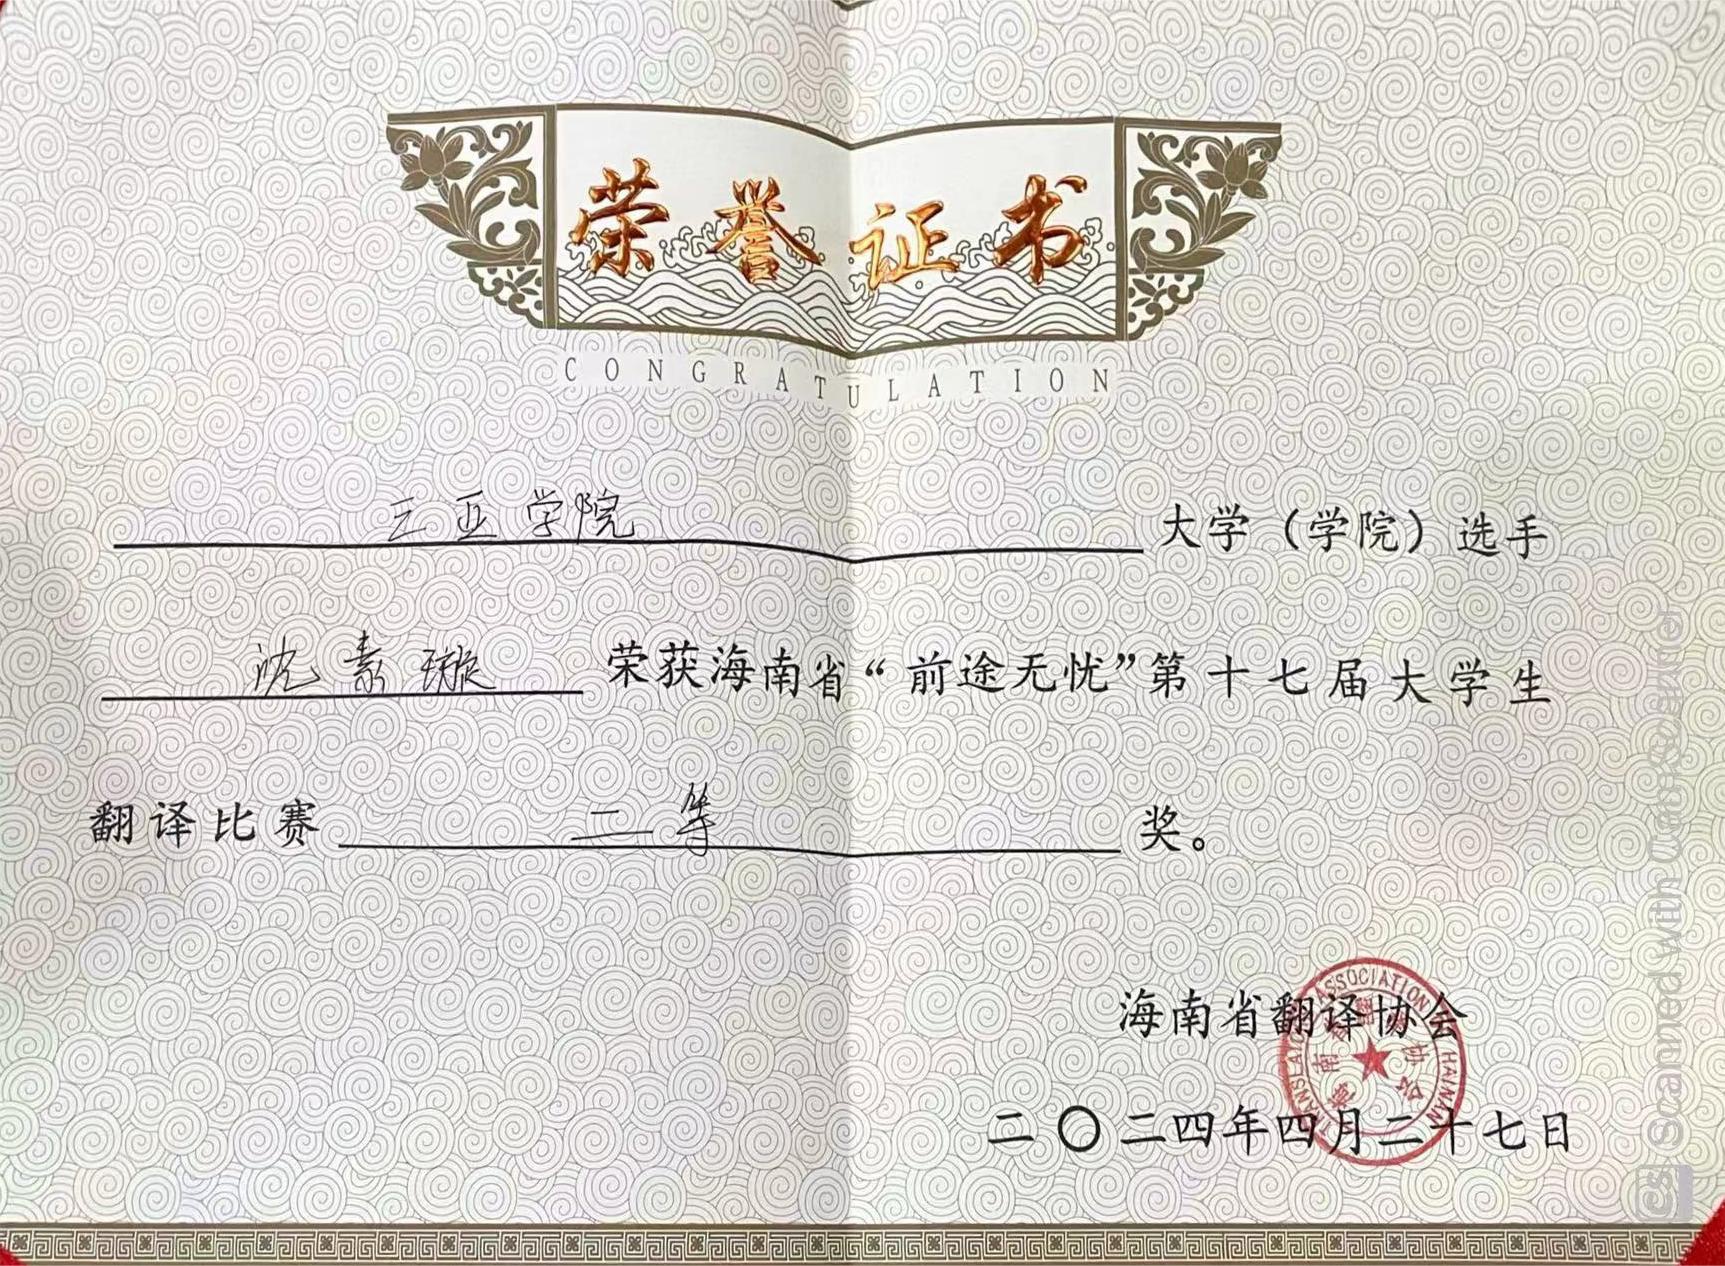 荣誉证书
CONGRATULATION
三亚学院大学（学院）选手
沈素璇荣获海南省“前途无忧”第十七届大学生
翻译比赛二等奖。
海南省翻译协会
二〇二四年四月二十七日
TRANSLATION ASSOCIATION HAINAN
海南省翻译协会
CS Scanned with CamScanner